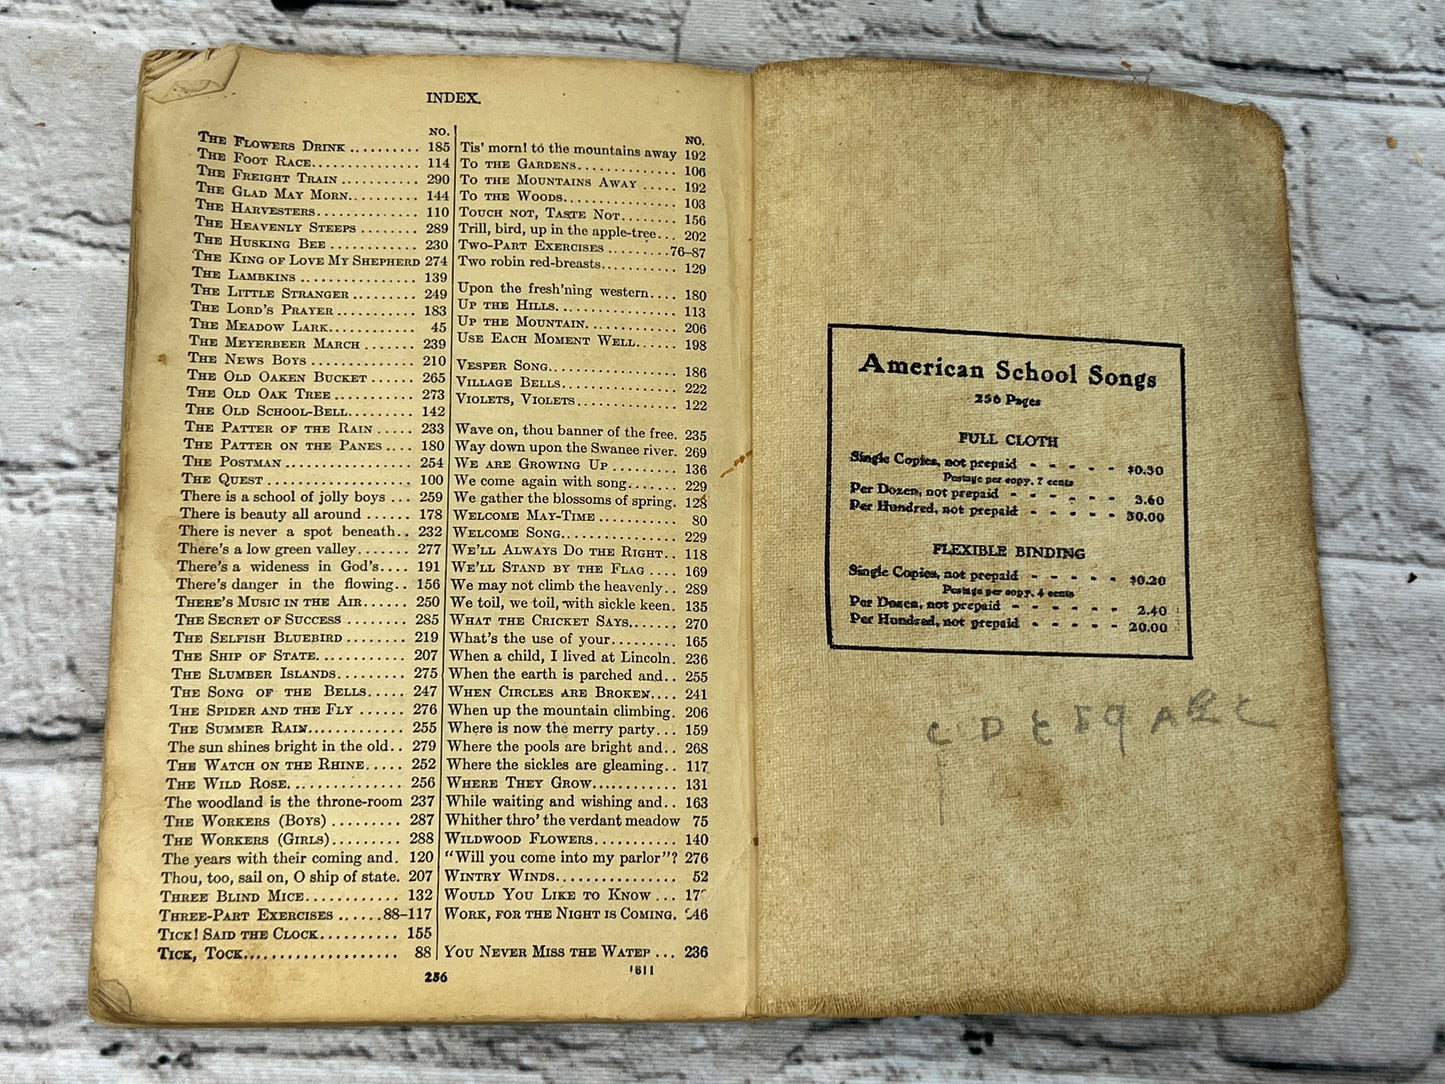 INDEX.
NO.
THE FLOWERS DRINK .......... 185
THE FOOT RACE.............. 114
THE FREIGHT TRAIN .......... 290
THE GLAD MAY MORN.......... 144
THE HARVESTERS............. 110
THE HEAVENLY STEEPS ........ 289
THE HUSKING BEE ............ 230
THE KING OF LOVE MY SHEPHERD 274
THE LAMBKINS ............... 139
THE LITTLE STRANGER ......... 249
THE LORD'S PRAYER .......... 183
THE MEADOW LARK............ 45
THE MEYERBEER MARCH ....... 239
THE NEWS BOYS ............. 210
THE OLD OAKEN BUCKET ...... 265
THE OLD OAK TREE .......... 273
THE OLD SCHOOL-BELL........ 142
THE PATTER OF THE RAIN ..... 233
THE PATTER ON THE PANES .... 180
THE POSTMAN ................ 254
THE QUEST .................. 100
There is a school of jolly boys ... 259
There is beauty all around ...... 178
There is never a spot beneath.. 232
There's a low green valley....... 277
There's a wideness in God's.... 191
There's danger in the flowing.. 156
THERE'S MUSIC IN THE AIR...... 250
THE SECRET OF SUCCESS ........ 285
THE SELFISH BLUEBIRD ........ 219
THE SHIP OF STATE............ 207
THE SLUMBER ISLANDS......... 275
THE SONG OF THE BELLS..... 247
THE SPIDER AND THE FLY ...... 276
THE SUMMER RAIN............. 255
The sun shines bright in the old.. 279
THE WATCH ON THE RHINE..... 252
THE WILD ROSE............... 256
The woodland is the throne-room 237
THE WORKERS (BOYS) ......... 287
THE WORKERS (GIRLS)......... 288
The years with their coming and. 120
Thou, too, sail on, O ship of state. 207
THREE BLIND MICE............ 132
THREE-PART EXERCISES ......88-117
TICK! SAID THE CLOCK.......... 155
TICK, TOCK.................... 88
NO.
Tis' morn! to the mountains away 192
TO THE GARDENS............. 106
TO THE MOUNTAINS AWAY ..... 192
TO THE WOODS............... 103
TOUCH NOT, TASTE NOT....... 156
Trill, bird, up in the apple-tree... 202
TWO-PART EXERCISES .........76-87
Two robin red-breasts........... 129
Upon the fresh'ning western.... 180
UP THE HILLS................ 113
UP THE MOUNTAIN............. 206
USE EACH MOMENT WELL...... 198
VESPER SONG................. 186
VILLAGE BELLS............... 222
VIOLETS, VIOLETS............. 122
Wave on, thou banner of the free. 235
Way down upon the Swanee river. 269
WE ARE GROWING UP ......... 136
We come again with song....... 229
We gather the blossoms of spring. 128
WELCOME MAY-TIME .......... 80
WELCOME SONG............... 229
WE'LL ALWAYS DO THE RIGHT.. 118
WE'LL STAND BY THE FLAG .... 169
We may not climb the heavenly.. 289
We toil, we toil, with sickle keen. 135
WHAT THE CRICKET SAYS....... 270
What's the use of your......... 165
When a child, I lived at Lincoln. 236
When the earth is parched and.. 255
WHEN CIRCLES ARE BROKEN.... 241
When up the mountain climbing. 206
Where is now the merry party... 159
Where the pools are bright and.. 268
Where the sickles are gleaming.. 117
WHERE THEY GROW............ 131
While waiting and wishing and.. 163
Whither thro' the verdant meadow 75
WILDWOOD FLOWERS........... 140
"Will you come into my parlor"? 276
WINTRY WINDS............... 52
WOULD YOU LIKE TO KNOW ...
WORK, FOR THE NIGHT IS COMING.
YOU NEVER MISS THE WATER ... 236
256
1611
American School Songs
256 Pages
FULL CLOTH
Single Copies, not prepaid - - - - - $0.30
Postage per copy, 7 cents
Per Dozen, not prepaid - - - - - - 3.60
Per Hundred, not prepaid - - - - - 30.00
FLEXIBLE BINDING
Single Copies, not prepaid - - - - - $0.20
Postage per copy, 4 cents
Per Dozen, not prepaid - - - - - - 2.40
Per Hundred, not prepaid - - - - - 20.00